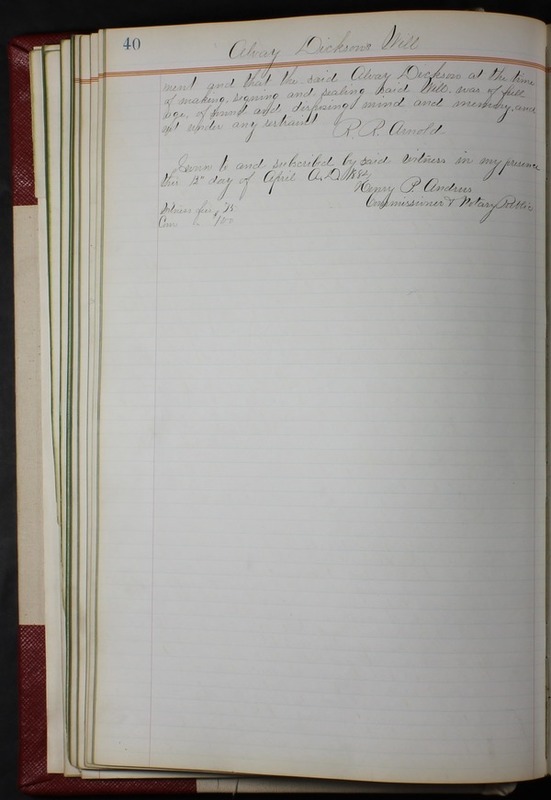 40
Alvay Dicksons Will
ment and that the said Alvay Dickson at the time
of making, signing and sealing said Will, was of full
age, of sound and disposing mind and memory, and
not under any restraint
R. R. Arnold
Sworn to and subscribed by said witness in my presence
this day of April A.D. 1882
Henry P. Andrus
Commissioner & Notary Public
Witness fee
Com 100